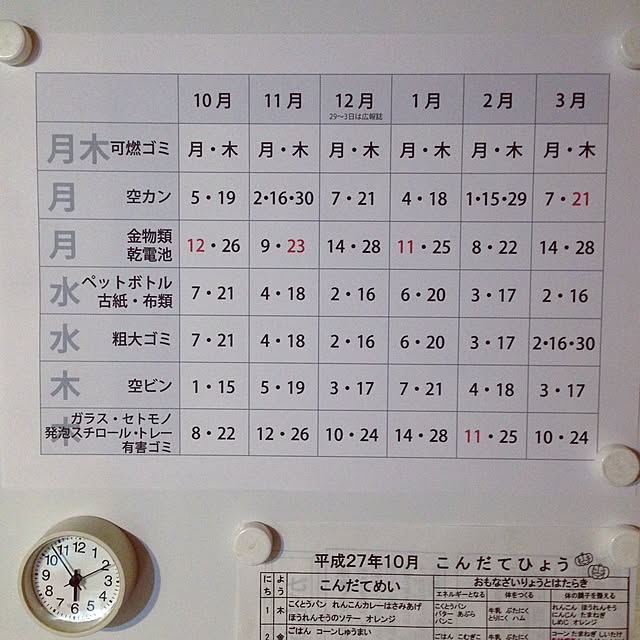 10月 11月 12月 1月 2月 3月
29〜3日は広報誌
月木 可燃ゴミ 月・木 月・木 月・木 月・木 月・木 月・木
月 空カン 5・19 2・16・30 7・21 4・18 1・15・29 7・21
月 金物類 乾電池 12・26 9・23 14・28 11・25 8・22 14・28
水 ペットボトル 古紙・布類 7・21 4・18 2・16 6・20 3・17 2・16
水 粗大ゴミ 7・21 4・18 2・16 6・20 3・17 2・16・30
木 空ビン 1・15 5・19 3・17 7・21 4・18 3・17
木 ガラス・セトモノ 発泡スチロール・トレー 有害ゴミ 8・22 12・26 10・24 14・28 11・25 10・24
12 1 2 3 4 5 6 7 8 9 10 11
平成27年10月 こんだてひょう
にち よう こんだてめい おもなざいりょうとはたらき
エネルギーとなる 体をつくる 体の調子を整える
1 木 こくとうパン れんこんカレーはさみあげ
ほうれんそうのソテー オレンジ
こくとうパン
バター あぶら
パンこ
牛乳 ぶたにく
とりにく ハム
れんこん ほうれんそう
にんじん たまねぎ
しめじ オレンジ
2 金 ごはん コーンしゅうまい
ごはん
牛乳 ぶたにく